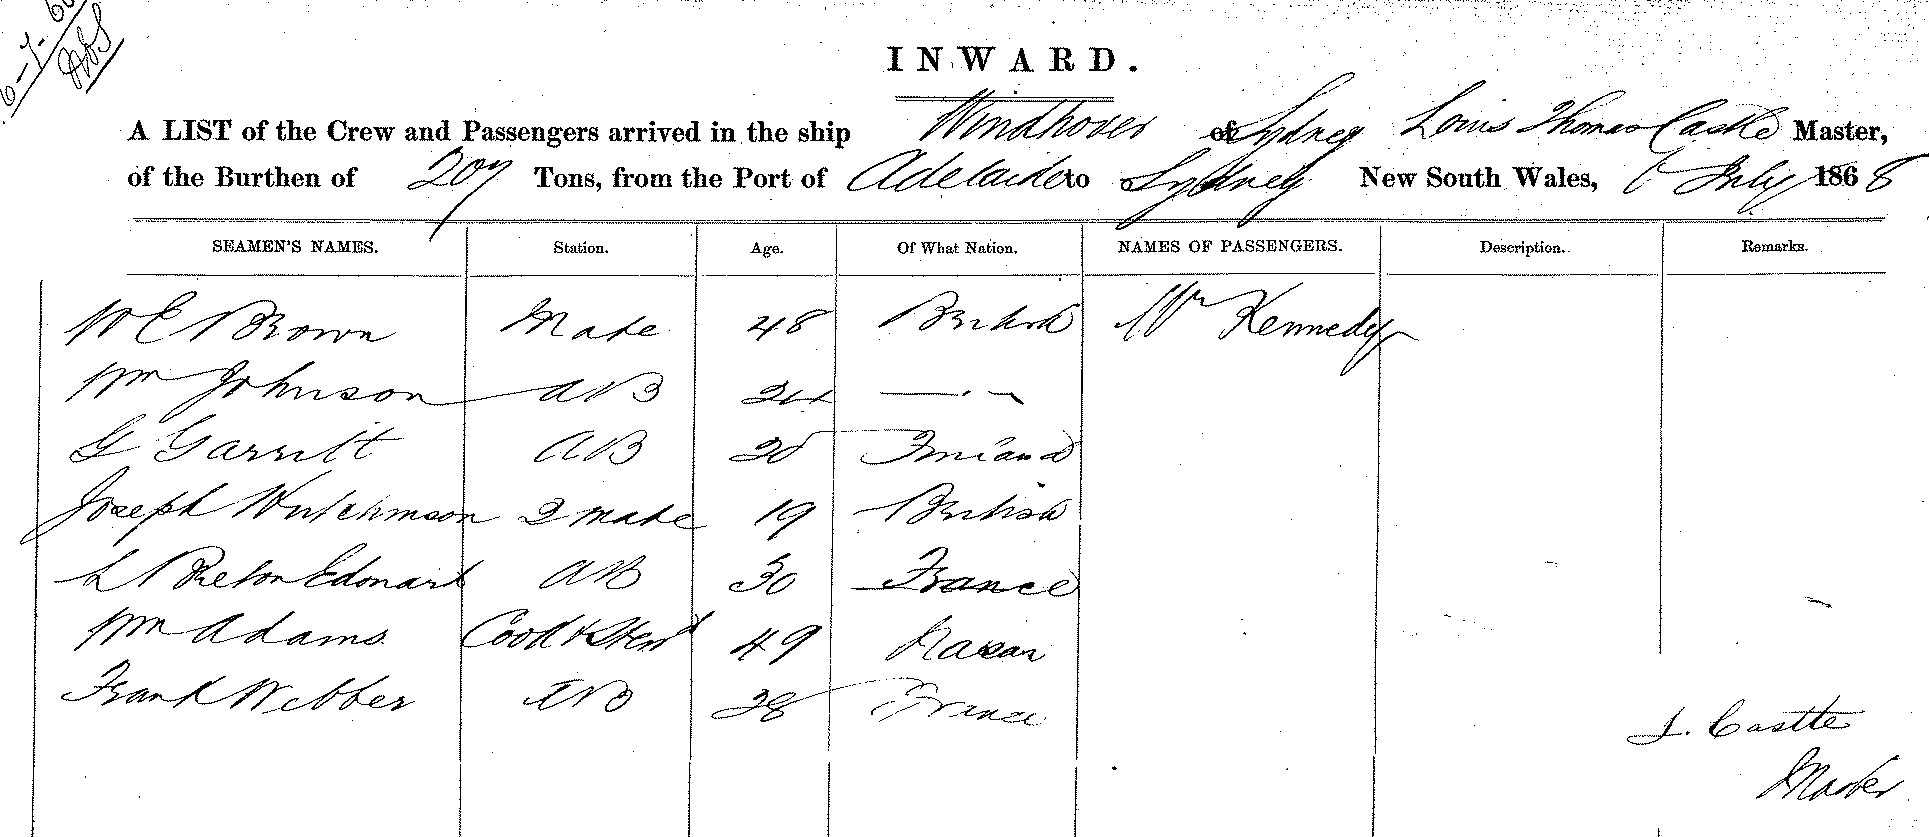 6-7-68
INWARD.
A LIST of the Crew and Passengers arrived in the ship Windhover of Sydney Louis Thomas Castle Master,
of the Burthen of 207 Tons, from the Port of Adelaide to Sydney New South Wales, 6 July 1868
SEAMEN'S NAMES. Station. Age. Of What Nation. NAMES OF PASSENGERS. Description. Remarks.
W E Brown Mate 48 British Mr Kennedy
Wm Johnson AB 24 — " —
G Garritt AB 20 Finland
Joseph Hutchinson 2 mate 19 British
L Breton Edouard AB 30 France
Wm Adams Cook & Stewd 49
Frank Webber AB 28 France
L. Castle
Master